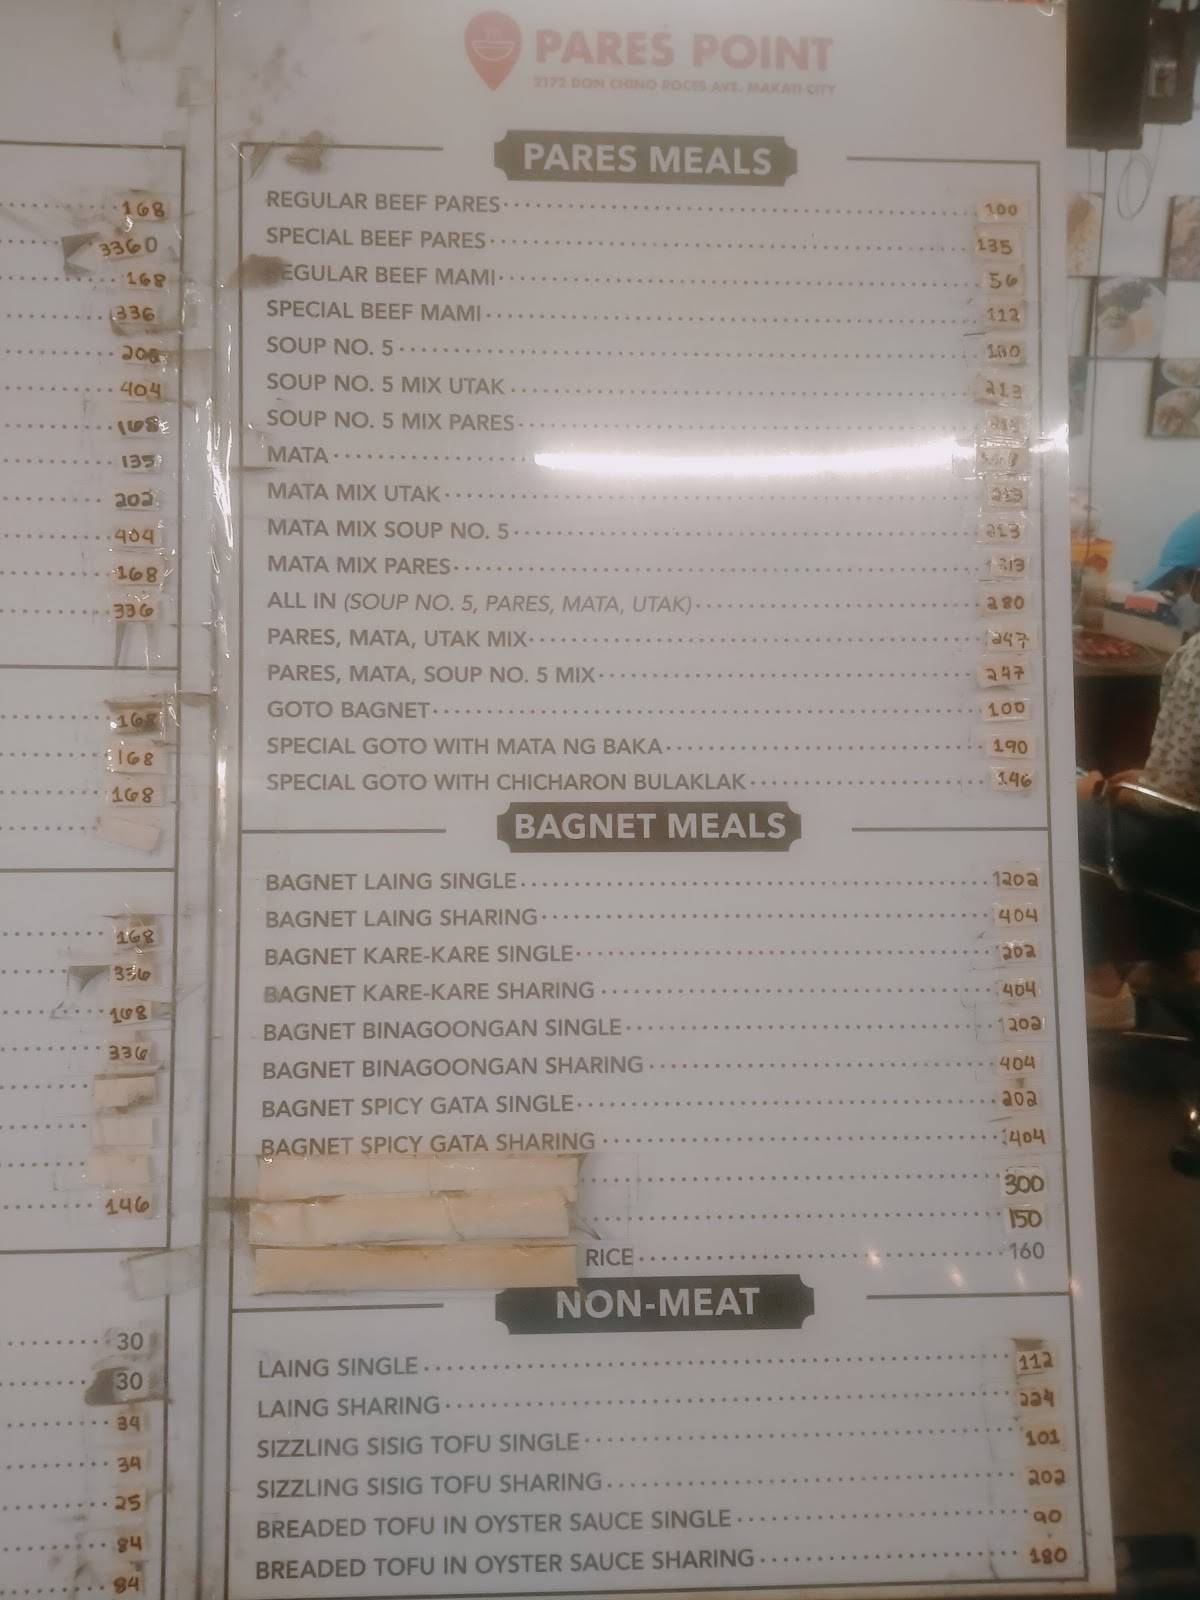 PARES POINT
2172 DON CHINO ROCES AVE. MAKATI CITY
168
3360
168
336
404
168
135
202
404
168
336
168
168
168
168
336
168
336
146
30
30
34
34
25
84
84
PARES MEALS
REGULAR BEEF PARES 100
SPECIAL BEEF PARES 135
EGULAR BEEF MAMI 56
SPECIAL BEEF MAMI 112
SOUP NO. 5 180
SOUP NO. 5 MIX UTAK 213
SOUP NO. 5 MIX PARES
MATA
MATA MIX UTAK 213
MATA MIX SOUP NO. 5 213
MATA MIX PARES 213
ALL IN (SOUP NO. 5, PARES, MATA, UTAK) 280
PARES, MATA, UTAK MIX 247
PARES, MATA, SOUP NO. 5 MIX 247
GOTO BAGNET 100
SPECIAL GOTO WITH MATA NG BAKA 190
SPECIAL GOTO WITH CHICHARON BULAKLAK 146
BAGNET MEALS
BAGNET LAING SINGLE 202
BAGNET LAING SHARING 404
BAGNET KARE-KARE SINGLE 202
BAGNET KARE-KARE SHARING 404
BAGNET BINAGOONGAN SINGLE 202
BAGNET BINAGOONGAN SHARING 404
BAGNET SPICY GATA SINGLE 202
BAGNET SPICY GATA SHARING 404
300
150
RICE 160
NON-MEAT
LAING SINGLE 112
LAING SHARING 224
SIZZLING SISIG TOFU SINGLE 101
SIZZLING SISIG TOFU SHARING 202
BREADED TOFU IN OYSTER SAUCE SINGLE 90
BREADED TOFU IN OYSTER SAUCE SHARING 180